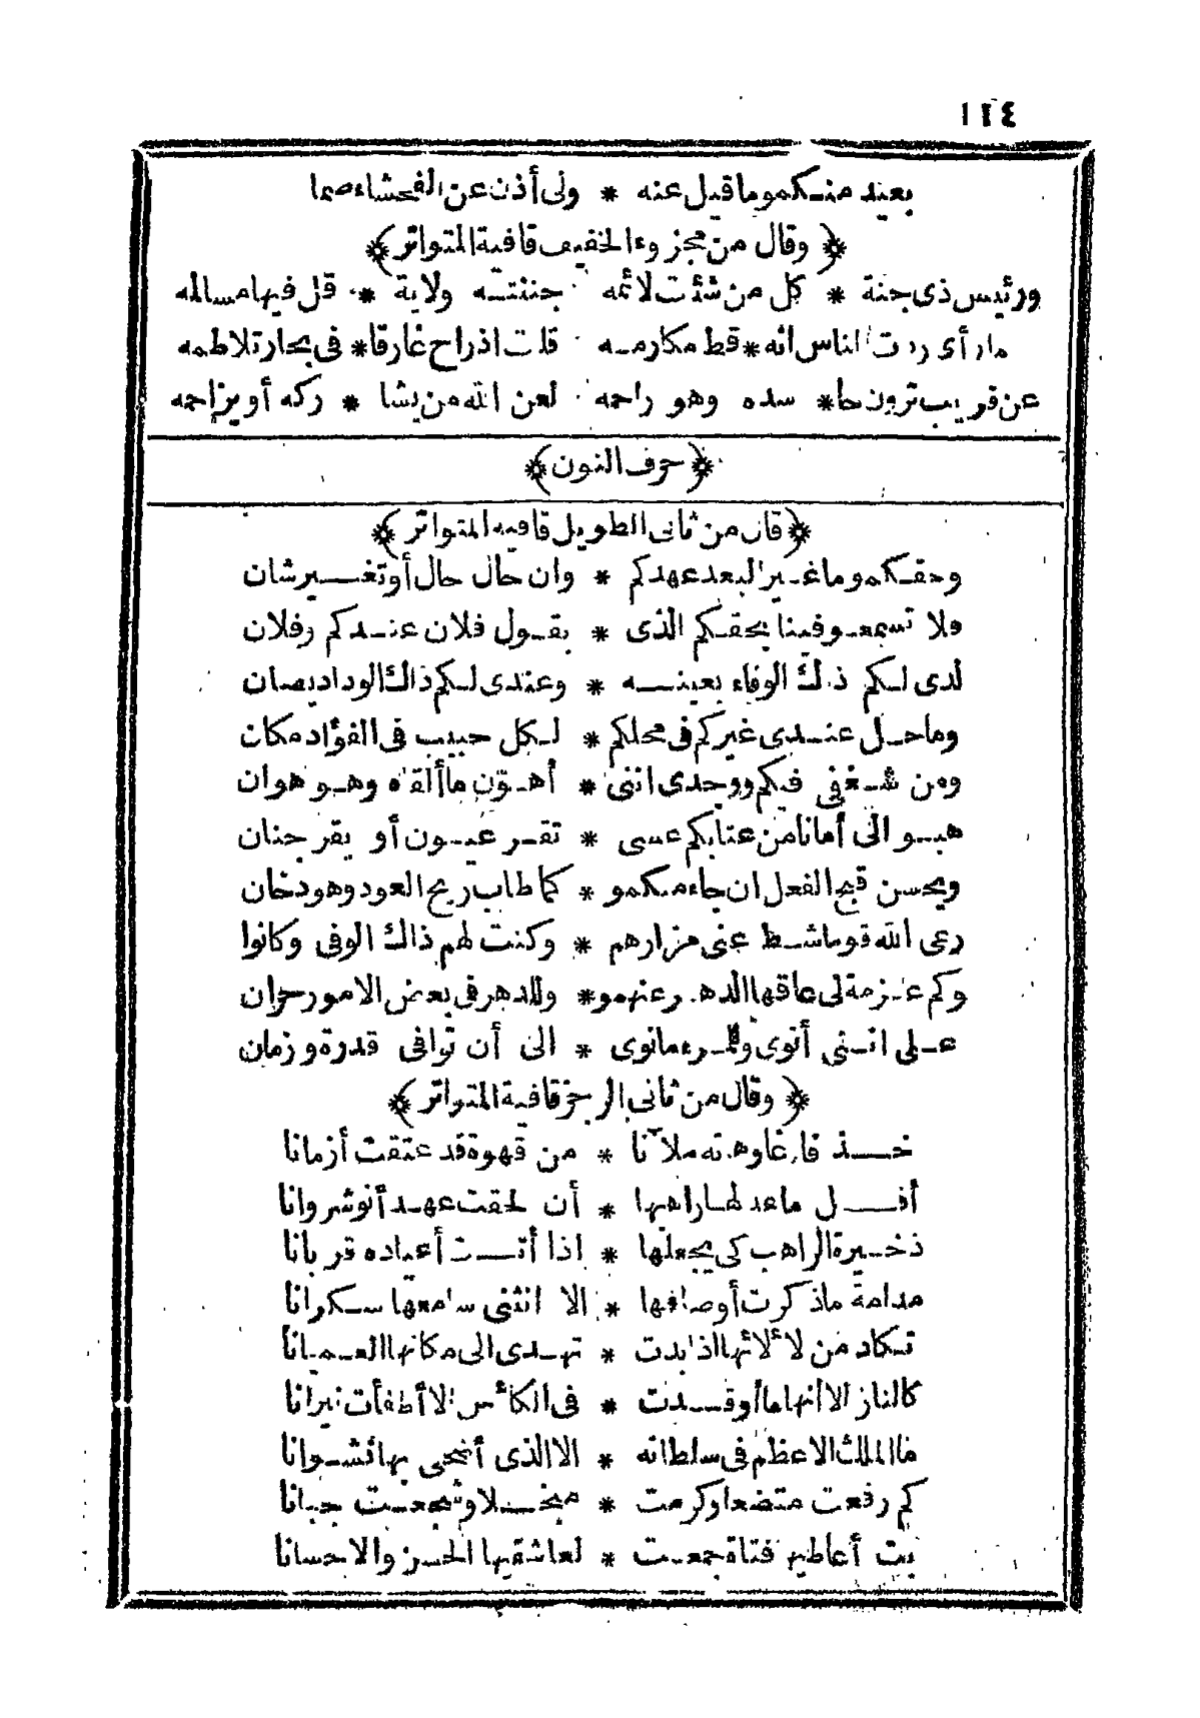 ١٢٤
بعيد منكمو ما قيل عنه * ولى أذن عن الفحشاء صما
﴿ وقال من مجزوء الخفيف قافية المتواتر ﴾
ورئيس ذى جنة * كل من شئت لائمه جننته ولاية * قل فيها مسالمه
ما رأى ردت الناس انه * قط مكارمه قلت اذ راح غارقا * فى بحار تلاطمه
عن قريب ترون حا * سده وهو راحمه لعن الله من يشا * ركه أو يزاحمه
﴿ حرف النون ﴾
﴿ قال من ثانى الطويل قافيه المتواتر ﴾
وحقكمو ما غير البعد عهدكم * وان حال حال أو تغير شان
فلا تسمعوا فينا بحقكم الذى * يقول فلان عندكم وفلان
لدى لكم ذلك الوفاء بعينه * وعندى لكم ذاك الوداد يصان
وما حل عندى غيركم فى محلكم * لكل حبيب فى الفؤاد مكان
ومن شغفى فيكم ووجدى اننى * أهون ما ألقاه وهو هوان
هبوا لى أمانا من عتابكم عسى * تقر عيون أو يقر جنان
ويحسن قبح الفعل ان جاء منكمو * كما طاب ريح العود وهو دخان
رعى الله قوما شط عنى مزارهم * وكنت لهم ذاك الوفى وكانوا
وكم عزمة لى عاقها الدهر عنهمو * وللدهر فى بعض الامور حران
على اننى أنوى وللمرء ما نوى * الى أن توافى قدرة وزمان
﴿ وقال من ثانى الرجز قافية المتواتر ﴾
خذ فارغا وهاته ملآنا * من قهوة قد عتقت أزمانا
أقل ما عد لها راهبها * أن لحقت عهد أنوشروانا
ذخيرة الراهب كى يجعلها * اذا أتت أعياده قربانا
مدامة ما ذكرت أوصافها * الا انثنى سامعها سكرانا
تكاد من لألائها اذا بدت * تهدى الى مكانها العميانا
كالنار الا أنها ما أوقدت * فى الكأس الا أطفأت نيرانا
ما الملك الاعظم فى سلطانه * الا الذى أضحى بها نشوانا
كم رفعت متضعا وكرمت * مبخلا وشجعت جبانا
بت أعاطيها فتاة جمعت * لعاشقيها الحسن والاحسانا